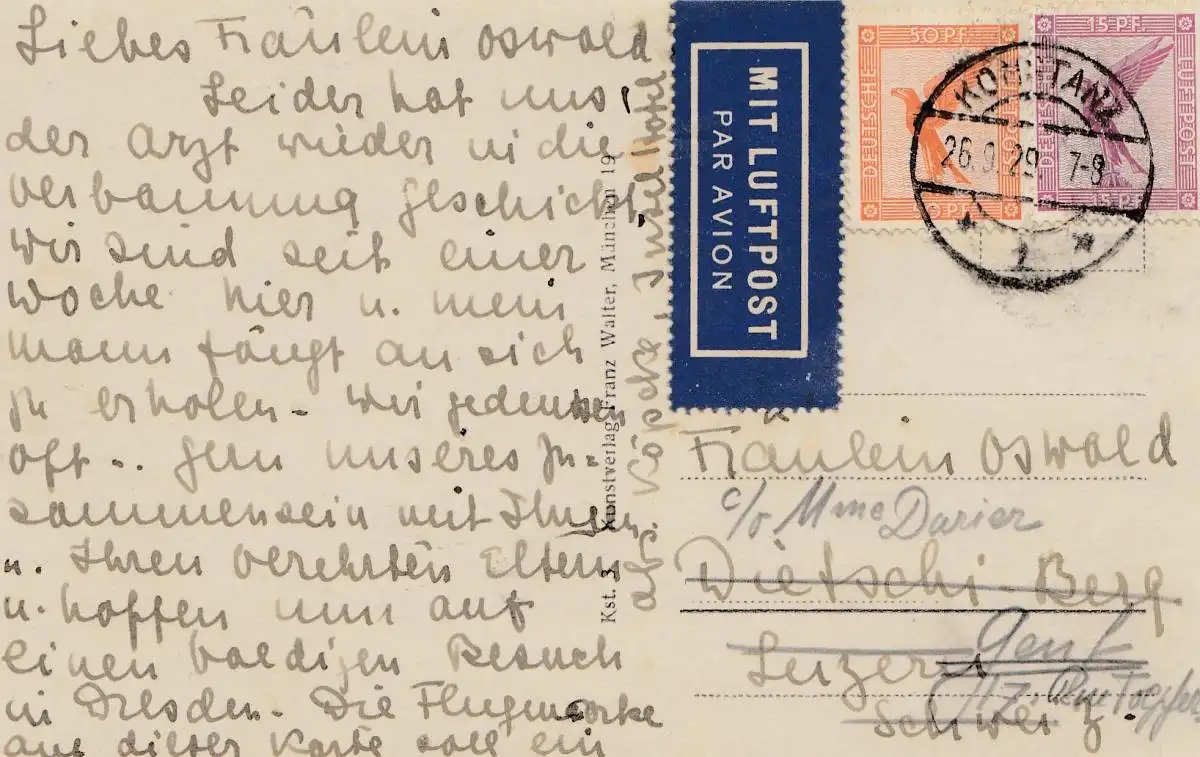 Liebes Fräulein Oswald
Leider hat uns
der Arzt wieder in die
Verbannung geschickt,
Wir sind seit einer
Woche hier u. mein
Mann fängt an sich
zu erholen - Wir gedenken
oft .. gern unseres Zu=
sammensein mit Ihnen
u. Ihren verehrten Eltern
u. hoffen nun auf
einen baldigen Besuch
in Dresden. Die Flugmarke
auf dieser Karte soll ein
Kst. 3 Kunstverlag Franz Walter, München 19
Köpcke, Insel Hotel
MIT LUFTPOST
PAR AVION
50 PF.
DEUTSCHE
LUFTPOST
50 PF.
15 PF.
DEUTSCHE
LUFTPOST
15 PF.
KONSTANZ
26.9.29 7-8
* 1 *
Fräulein Oswald
c/o Mme Darier
Dietschi-Berg
Genf
Luzern
Rue Toepffer
Schweiz.